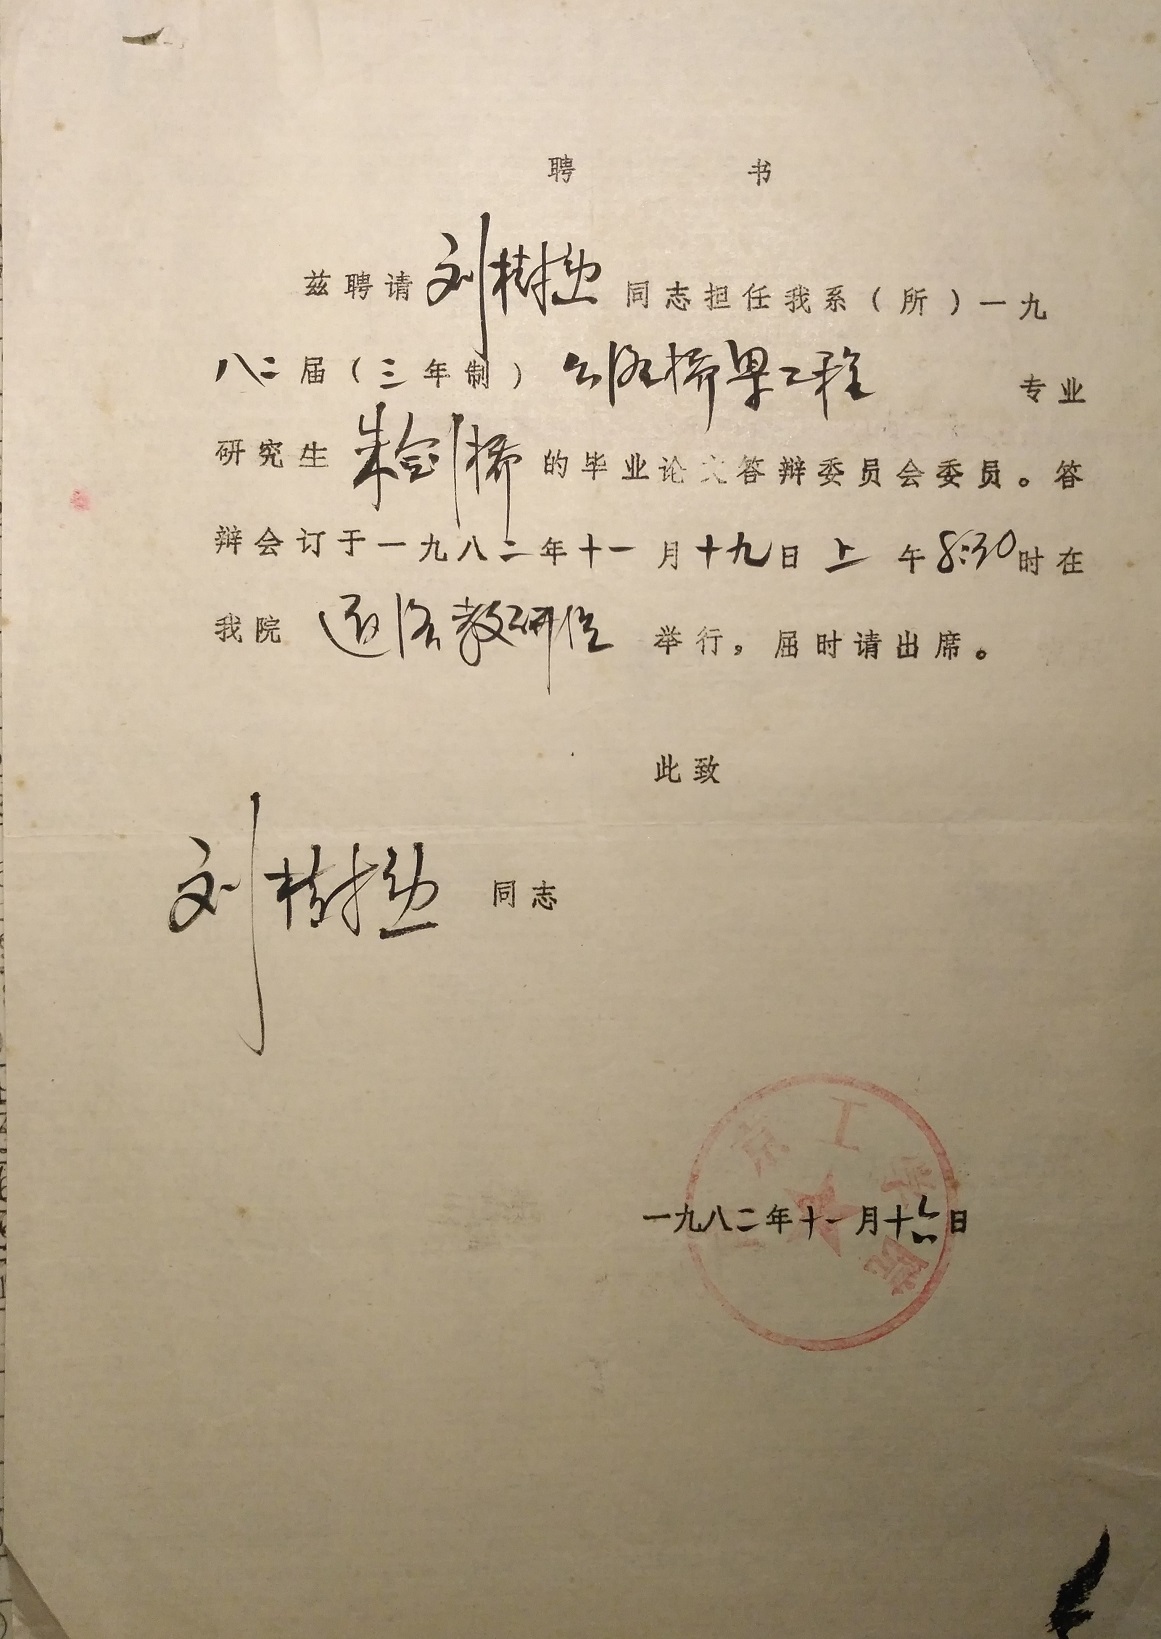 聘 书
兹聘请刘树勋同志担任我系(所)一九
八二届(三年制)公路桥梁工程 专业
研究生 朱剑桥 的毕业论文答辩委员会委员。答
辩会订于一九八二年十一月十九日上午8:30时在
我院 道路教研组 举行,届时请出席。
此致
刘树勋 同志
京工学院
一九八二年十一月十六日